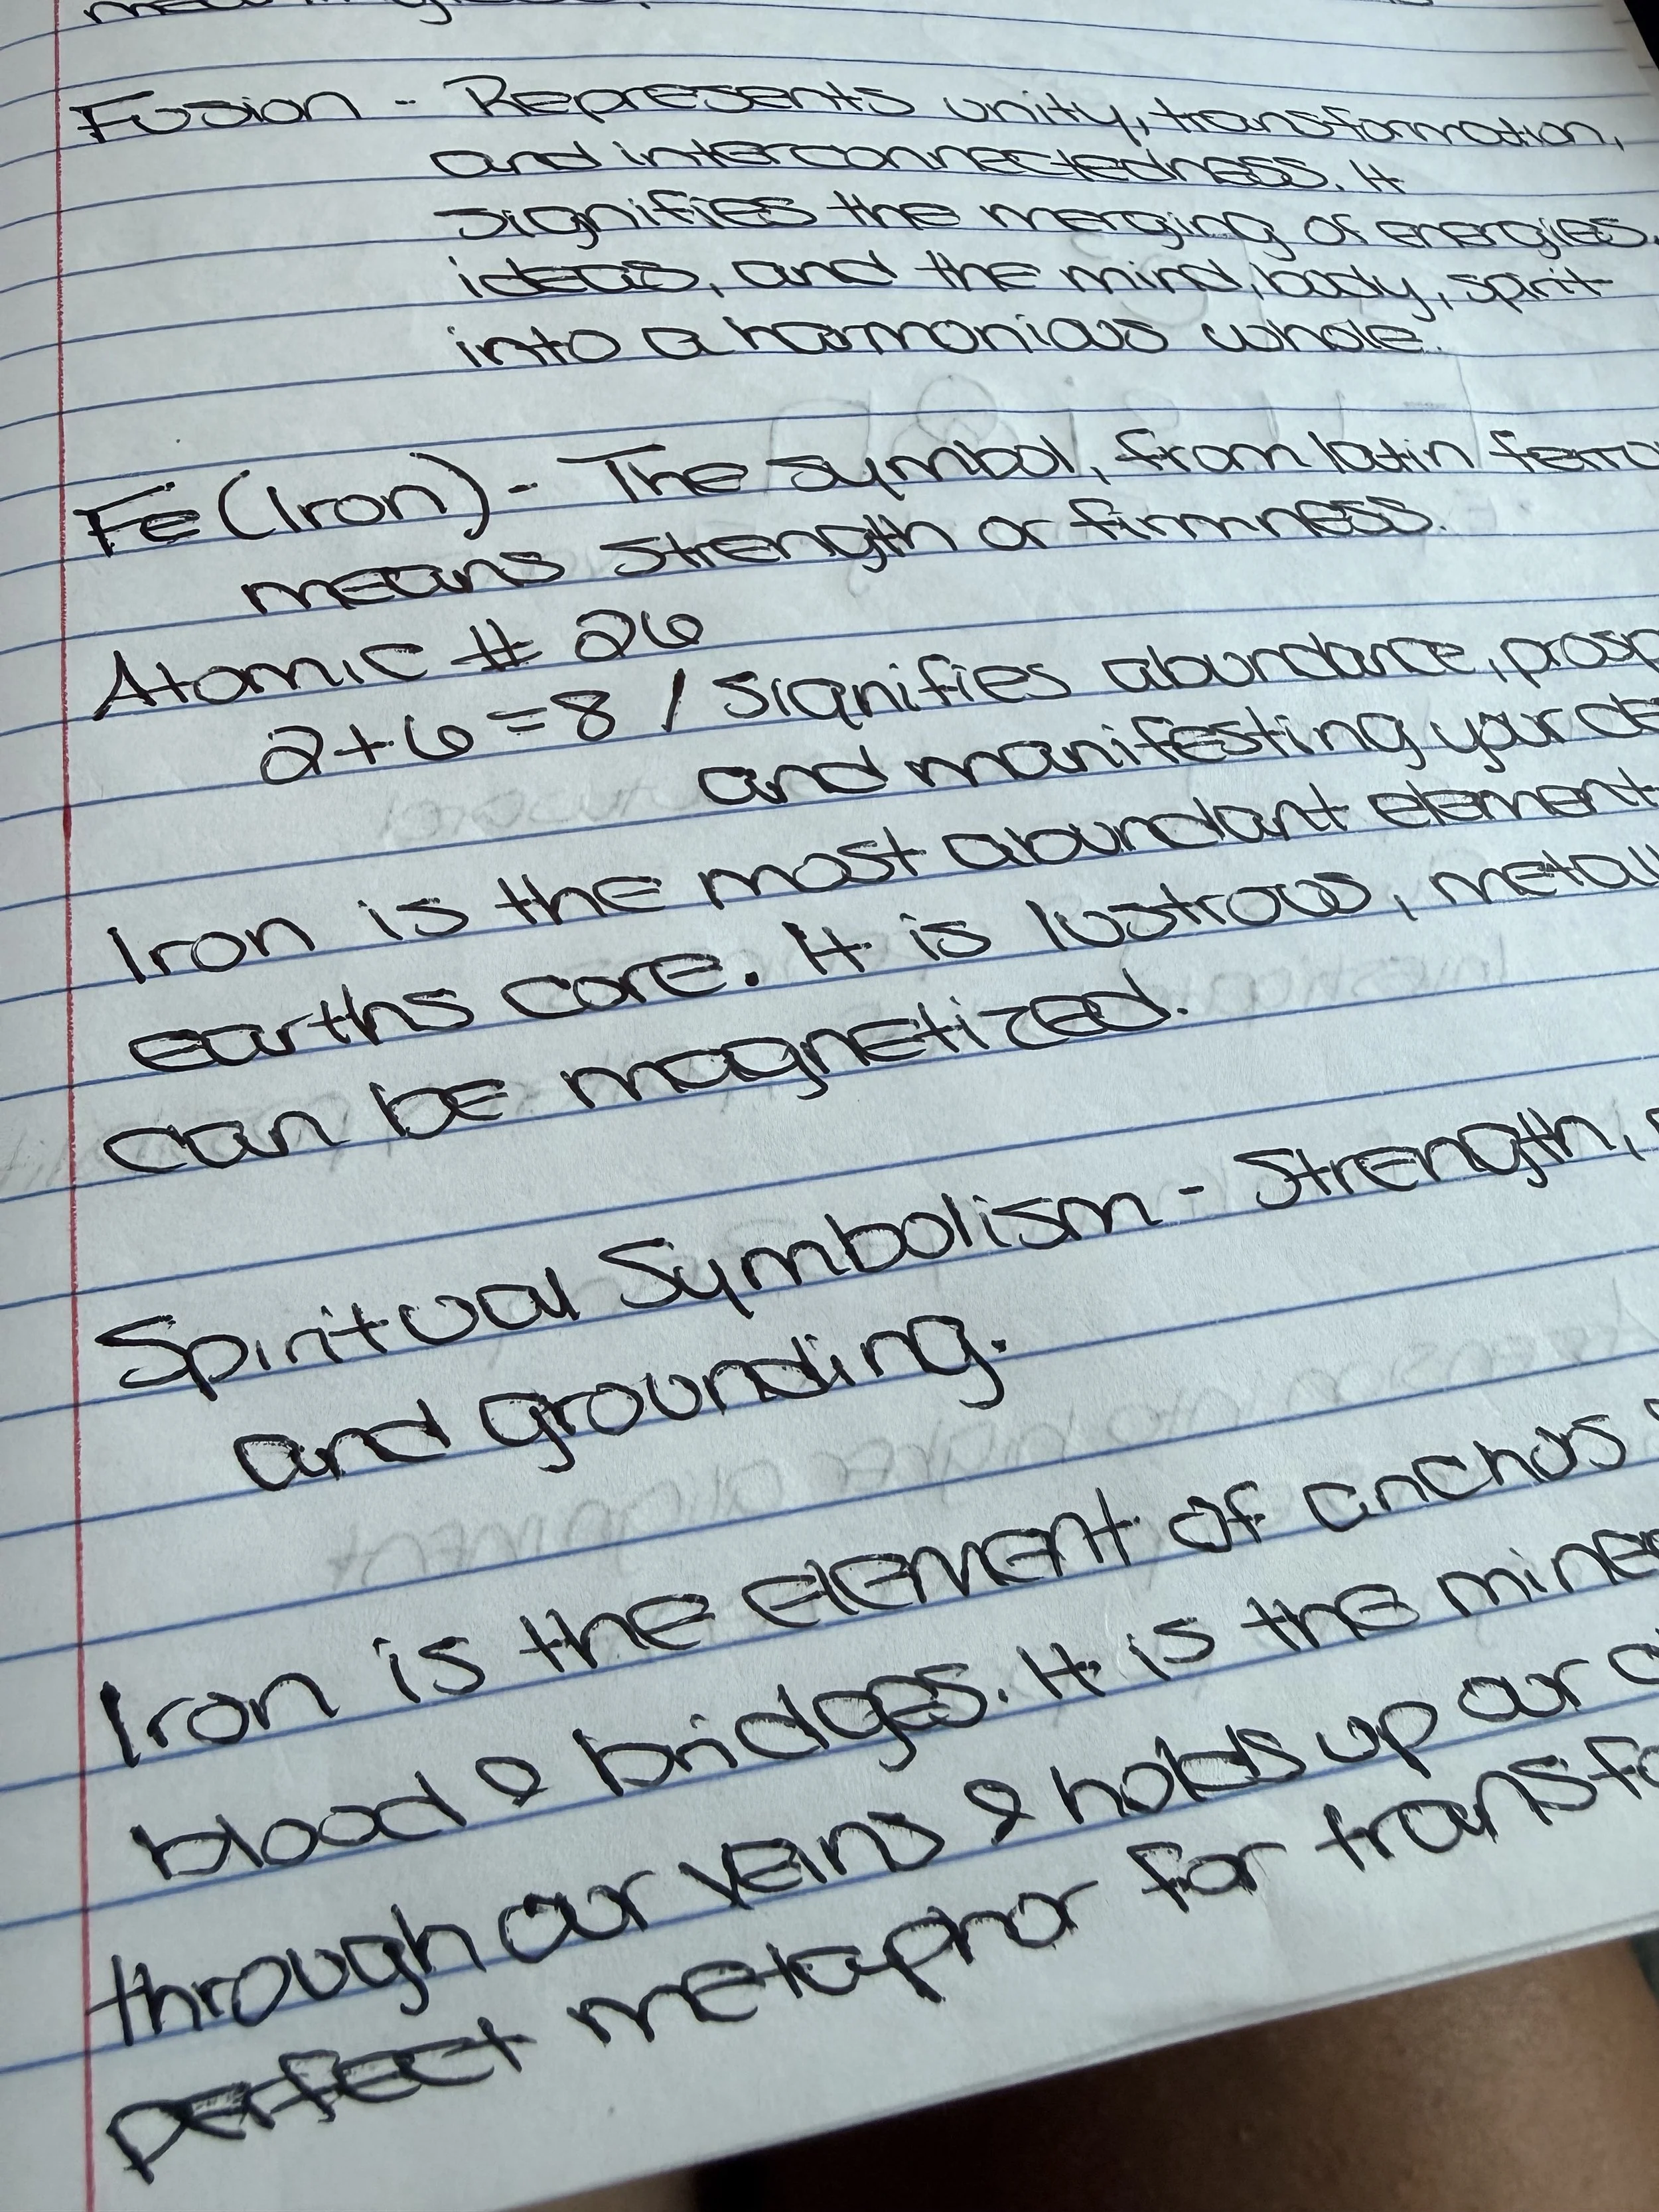 Fusion - Represents unity, transformation,
and interconnectedness. It
signifies the merging of energies,
ideas, and the mind, body, spirit
into a harmonious whole.
Fe (Iron) - The symbol, from latin ferro
means strength or firmness.
Atomic # 26
2+6=8 / Signifies abundance, prosp
and manifesting your de
Iron is the most abundant element
earths core. It is lustrous, metall
can be magnetized.
Spiritual Symbolism - Strength,
and grounding.
Iron is the element of anchors &
blood & bridges. It is the miner
through our veins & holds up our
perfect metaphor for transfo